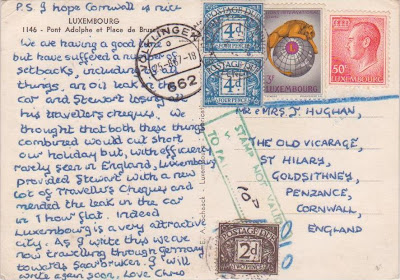 P.S. I hope Cornwall is nice
LUXEMBOURG
1146 - Pont Adolphe et Place de Bru
We are having a good time
but have suffered a number of
setbacks, including
things, an oil leak
car and Stewart losing all
his travellers cheques. We
thought that both these things
combined would cut short
our holiday but, with efficiency
rarely seen in England, Luxembourg
provided Stewart with a new
lot of Travellers Cheques and
mended the leak in the car
in 1 hour flat. Indeed
Luxembourg is a very attractive
city. As I write this we are
now travelling through Germany
towards Saarbruken. I will
write again soon. Love Chris
662
POSTAGE DUE
4d
POSTAGE DUE
4d
3F
LUXEMBOURG
50c
LUXEMBOURG
MR & MRS J. HUGHAN,
THE OLD VICARAGE,
ST HILARY,
GOLDSITHNEY,
PENZANCE,
CORNWALL,
ENGLAND
STAMP NOT VALID
10D
POSTAGE DUE
2d
TWO PENCE